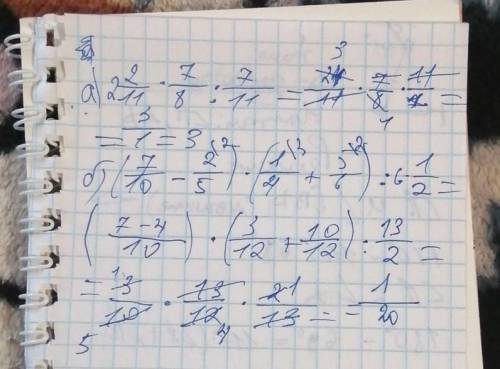 а) 2 2/11 · 7/8 : 7/11 = 24/11 · 7/8 · 11/7 =
= 3/1 = 3
б) (7/10 - 2/5) · (1/4 + 5/6) : 6 1/2 =
((7-4)/10) · (3/12 + 10/12) : 13/2 =
= 3/10 · 13/12 · 2/13 = 1/20